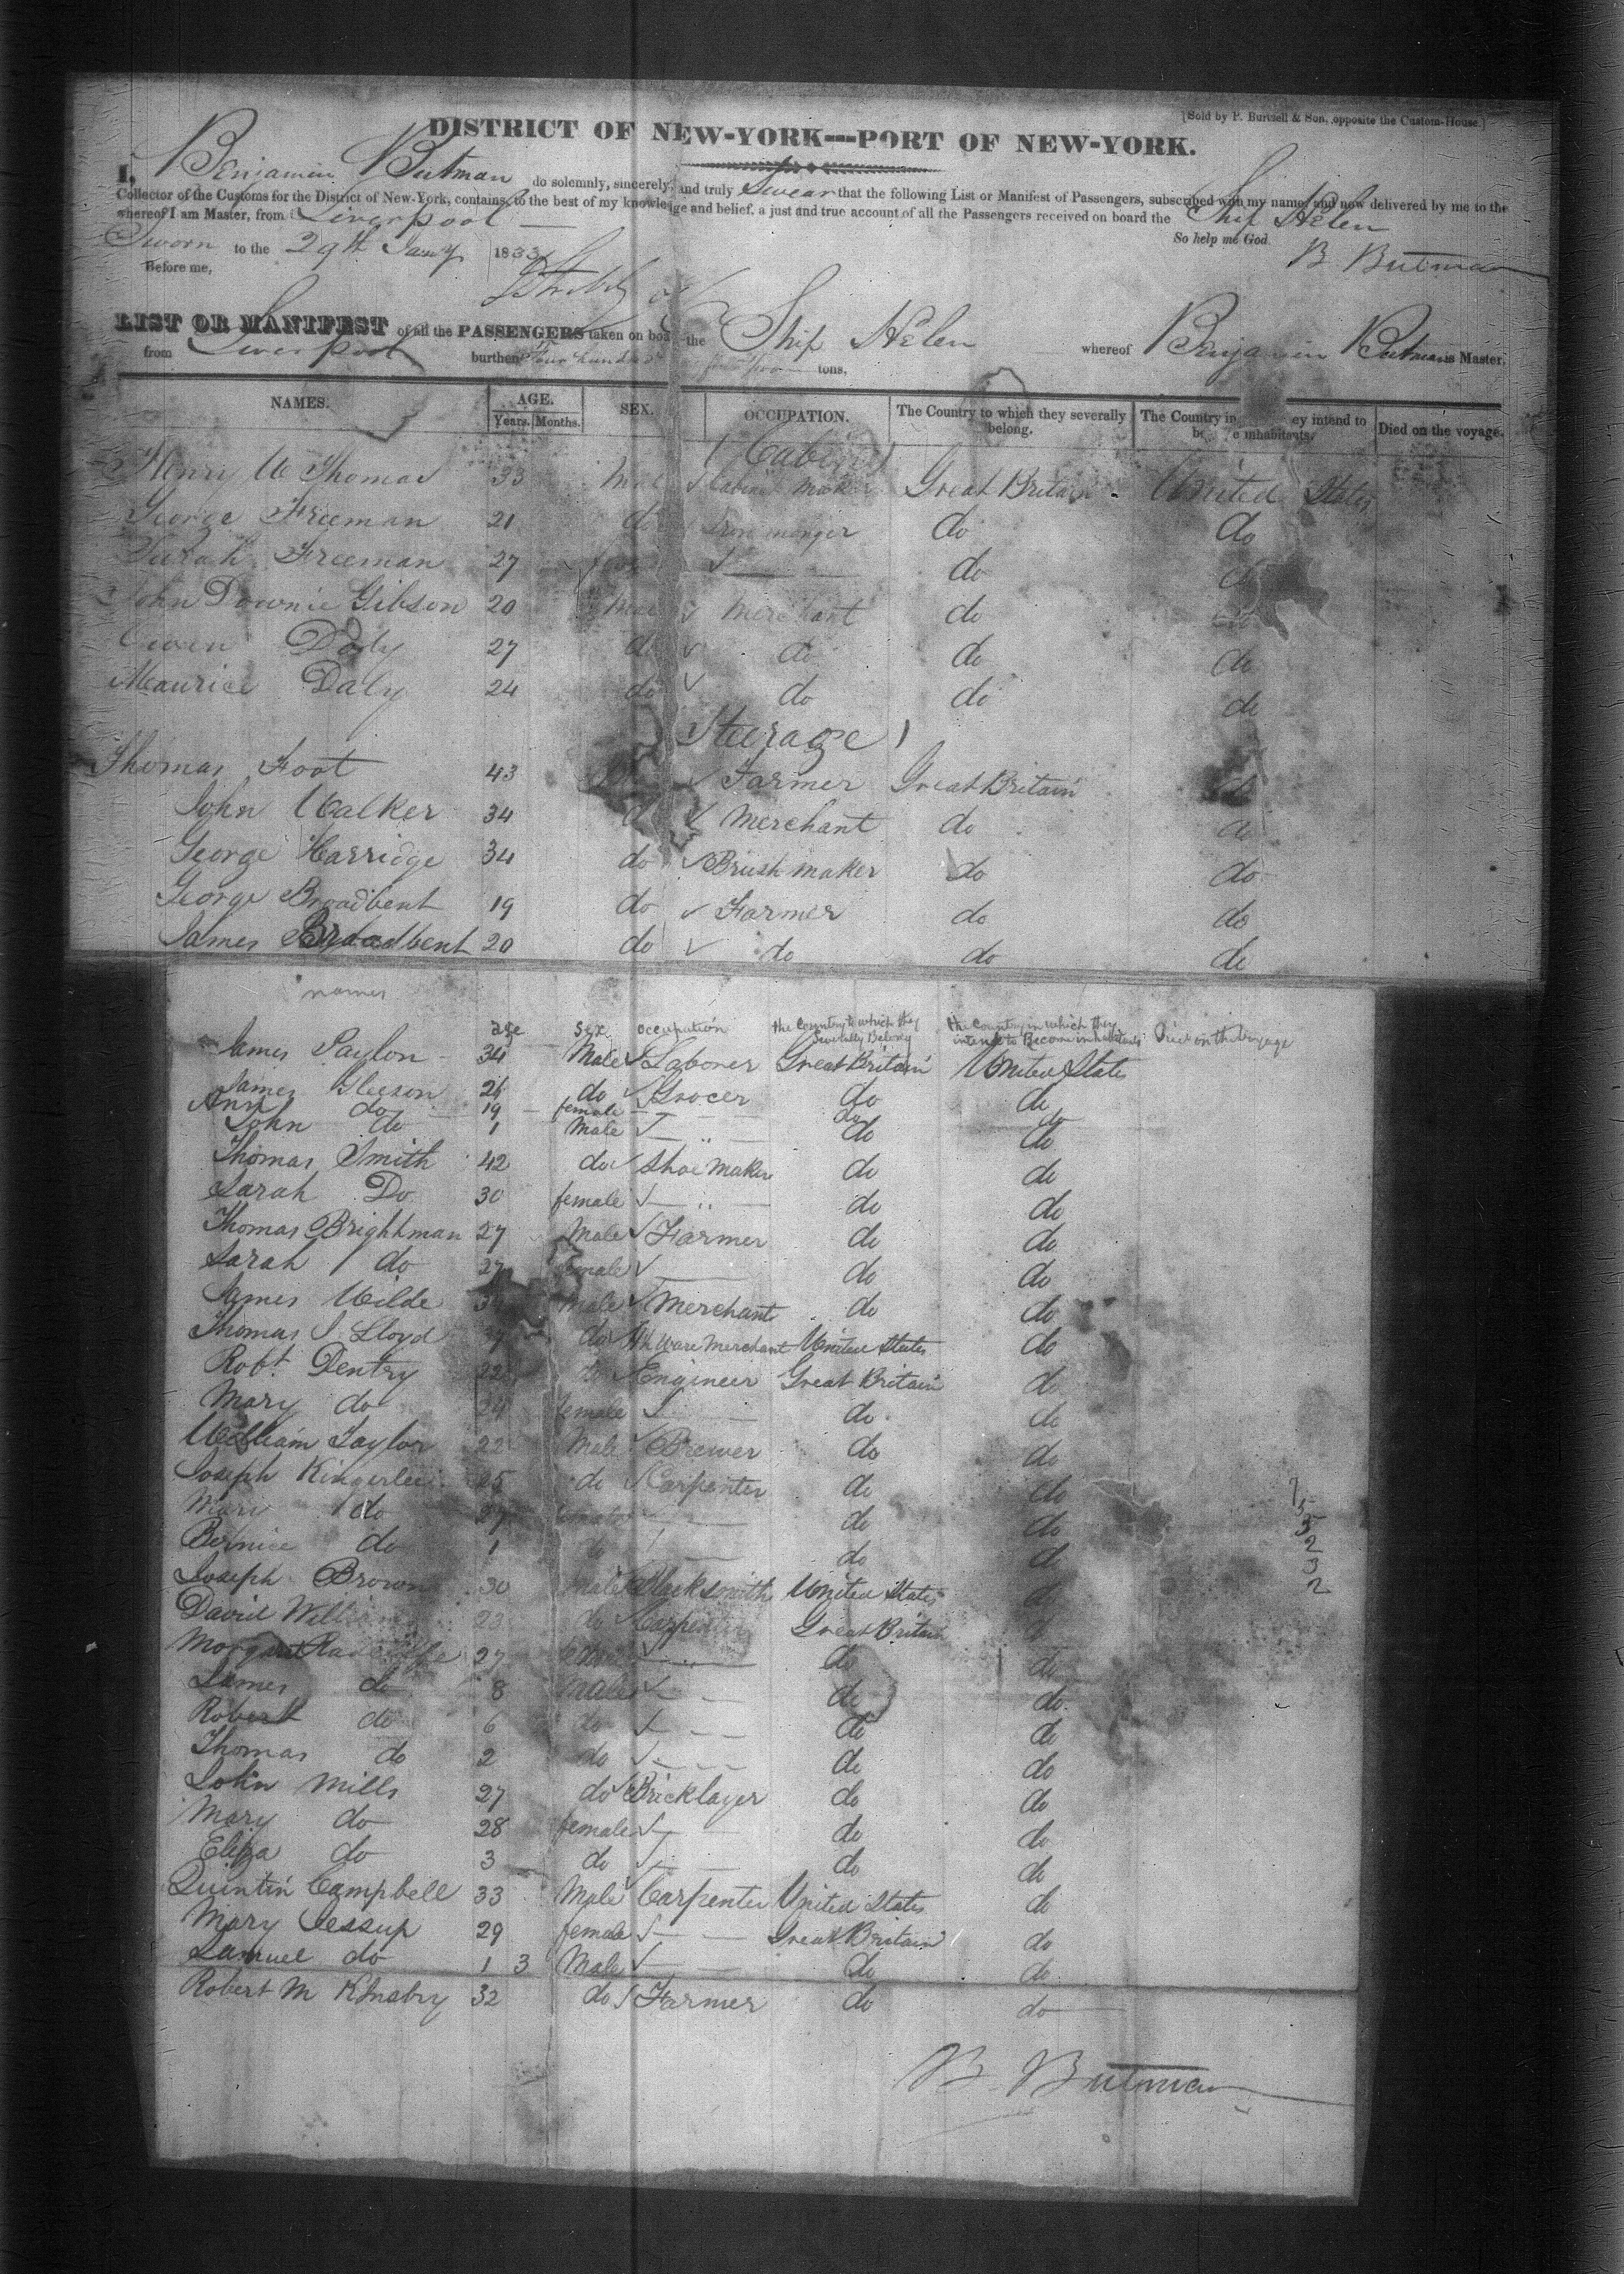 [Sold by P. Burtsell & Son, opposite the Custom-House.]
DISTRICT OF NEW-YORK---PORT OF NEW-YORK.
I, Benjamin Butman do solemnly, sincerely, and truly Swear that the following List or Manifest of Passengers, subscribed with my name, and now delivered by me to the
Collector of the Customs for the District of New-York, contains, to the best of my knowledge and belief, a just and true account of all the Passengers received on board the Ship Helen
whereof I am Master, from Liverpool
So help me God.
Sworn to the 29th Jany 1833
B Butman
Before me,
LIST OR MANIFEST of all the PASSENGERS taken on board the Ship Helen whereof Benjamin Butman is Master,
from Liverpool burthen Four hundred tons,
NAMES. AGE. SEX. OCCUPATION. The Country to which they severally belong. The Country in ey intend to be inhabitants. Died on the voyage.
Years. Months.
(Cabin)
Henry W Thomas 33 Male Cabinet maker Great Britain United States
George Freeman 21 do Iron monger do do
Sarah Freeman 27 do do
John Downie Gibson 20 Male Merchant do do
Owen Daly 27 do do do do
Maurice Daly 24 do do do do
Steerage
Thomas Foot 43 Farmer Great Britain do
John Walker 34 do Merchant do do
George Harridge 34 do Brush maker do do
George Broadbent 19 do Farmer do do
James Broadbent 20 do do do do
names age Sex occupation the Country to which they Severally Belong the Country in which they intend to Become inhabitants Died on the Voyage
James Saylon 34 Male Laborer Great Britain United States
James Gleeson 26 do Grocer do do
Ann do 19 female do do
John do 1 Male do do
Thomas Smith 42 do Shoe Maker do do
Sarah Do 30 female do do
Thomas Brightman 27 Male Farmer do do
Sarah do 27 female do do
James Wilde 34 Male Merchant do do
Thomas J. Lloyd do ware Merchant United States do
Robt. Dentry 22 do Engineer Great Britain do
Mary do 24 female do do
William Taylor 22 Male Brewer do do
Joseph Kingerlee 25 do Carpenter do do
Mary do 27 female do do
Bernice do 1 do do do
Joseph Brown 30 Male Blacksmith United States do
David William 23 do Carpenter Great Britain do
Margaret 27 do do
James do 8 Male do do
Robert do 6 do do do
Thomas do 2 do do do
John Mills 27 do Bricklayer do do
Mary do 28 female do do
Eliza do 3 do do do
Quintin Campbell 33 Male Carpenter United States do
Mary Jessup 29 female Great Britain do
Samuel do 1 3 Male do do
Robert M 32 do Farmer do do
B. Butman